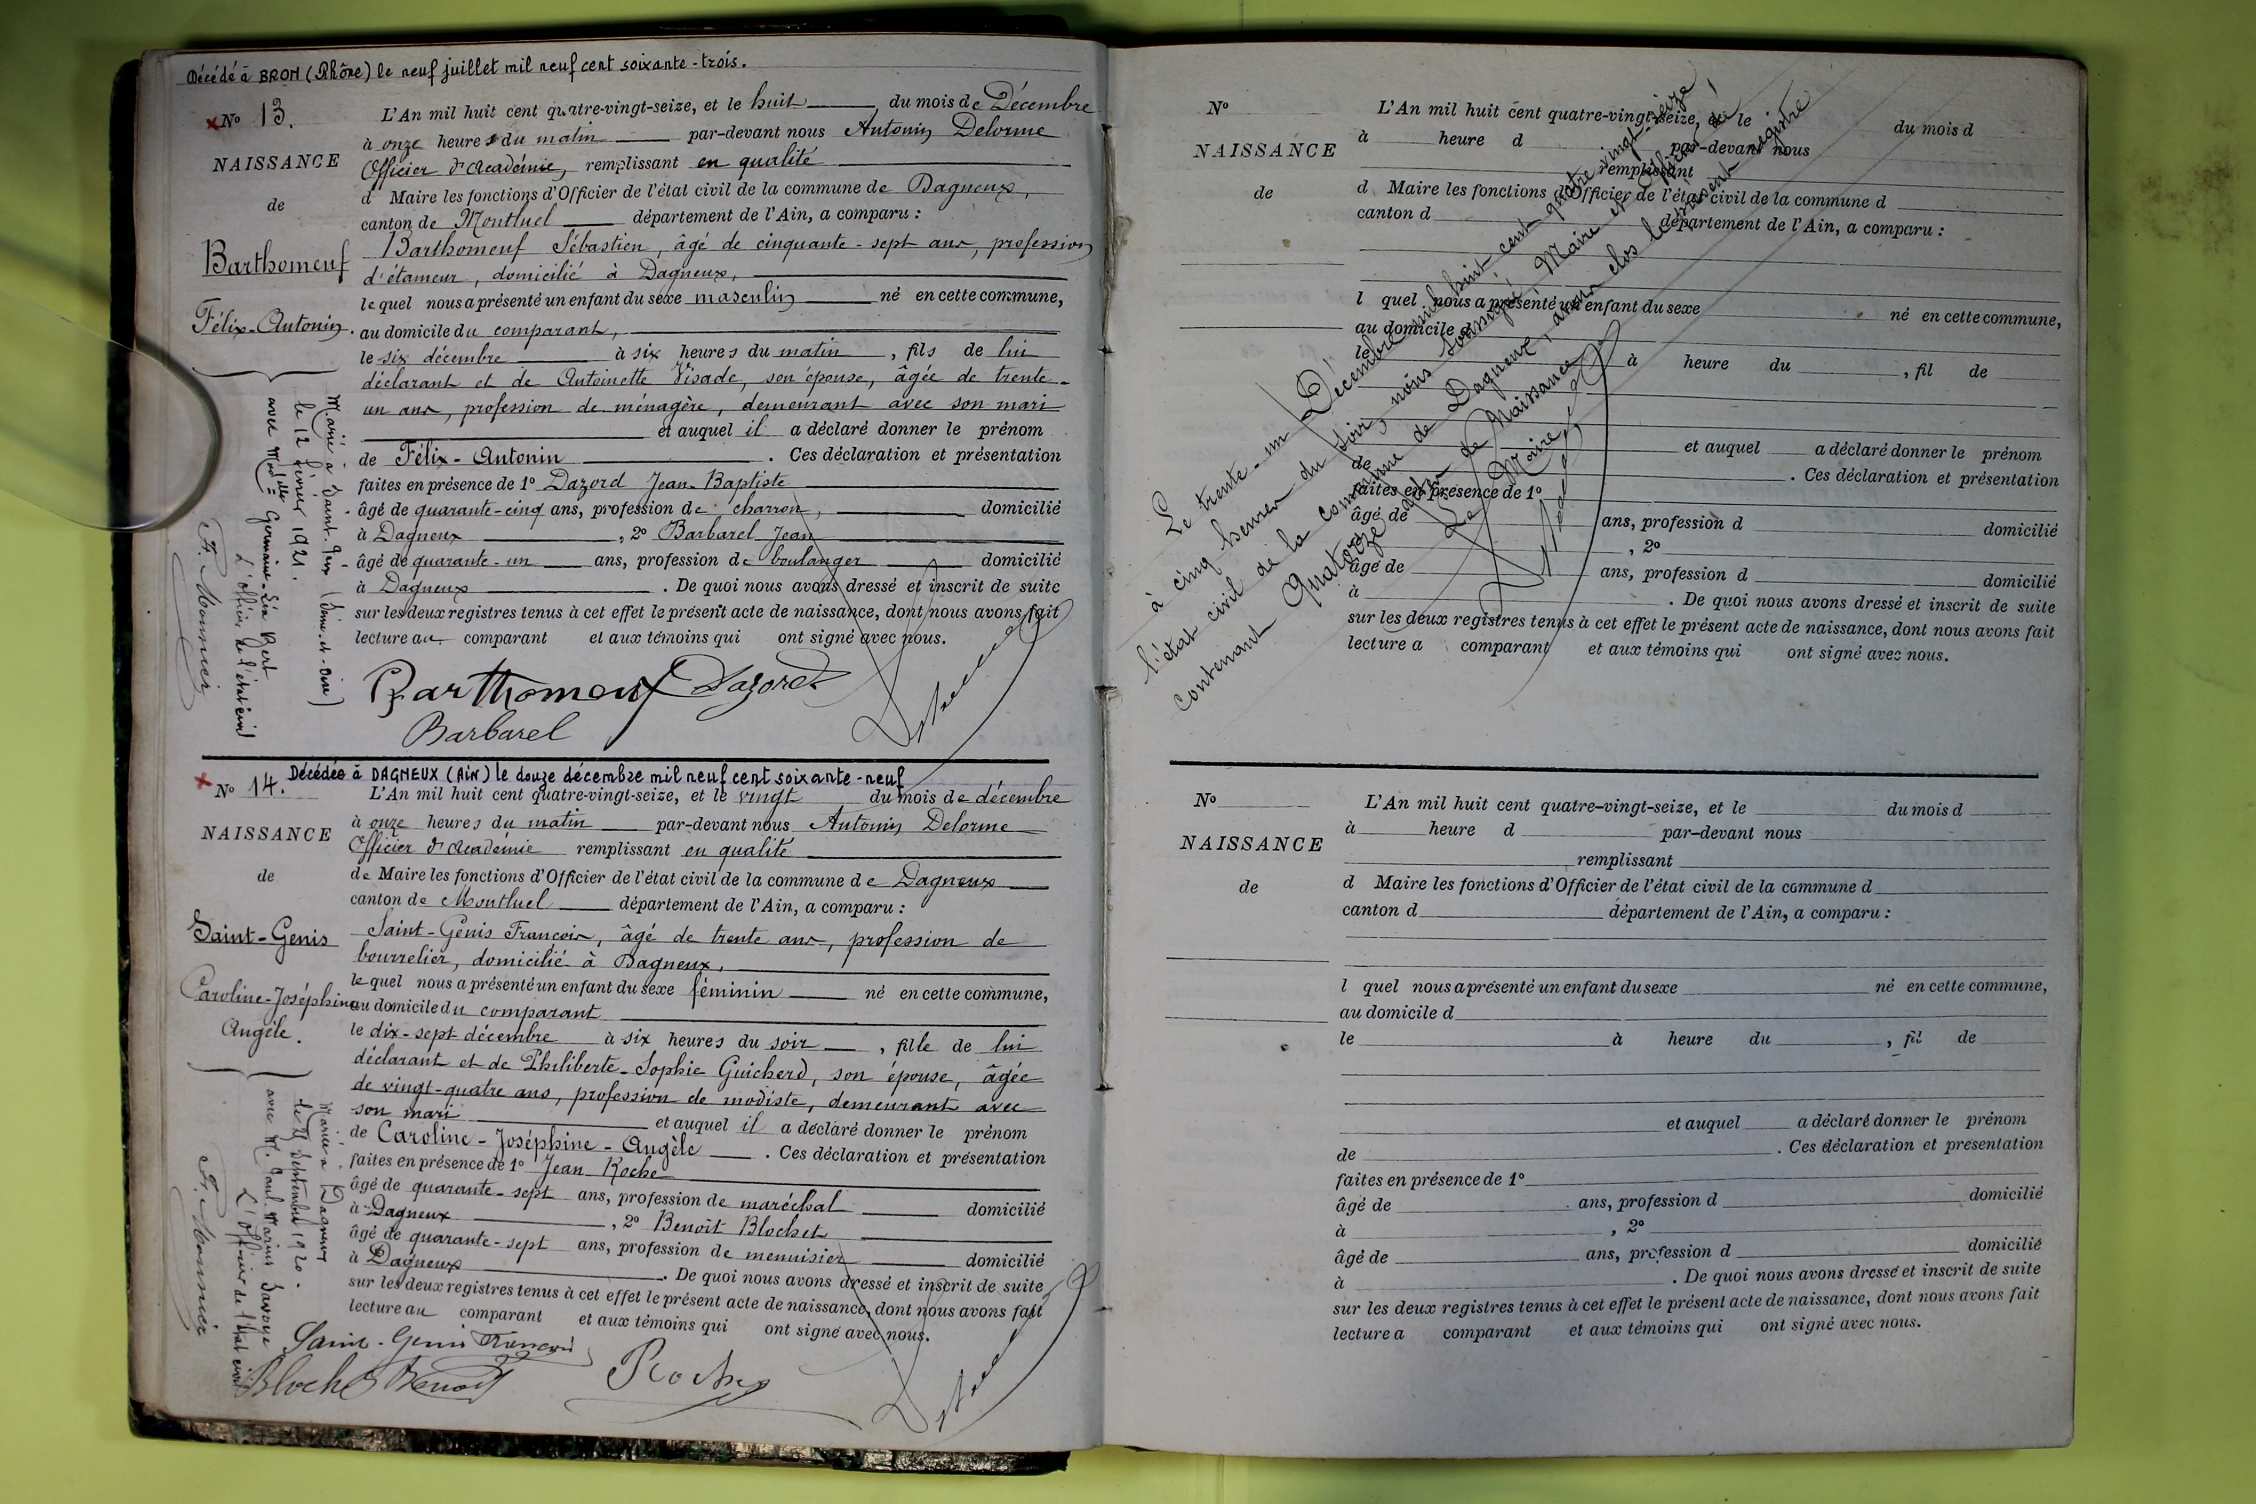 Décédé à BRON (Rhône) le neuf juillet mil neuf cent soixante-trois.
N° 13.
NAISSANCE
de
Barthomeuf
Félix-Antonin.
L'An mil huit cent quatre-vingt-seize, et le huit du mois de Décembre
à onze heures du matin par-devant nous Antonin Delorme
Officier d'Académie, remplissant en qualité
d Maire les fonctions d'Officier de l'état civil de la commune de Dagneux,
canton de Montluel département de l'Ain, a comparu :
Barthomeuf Sébastien, âgé de cinquante-sept ans, profession
d'étameur, domicilié à Dagneux,
lequel nous a présenté un enfant du sexe masculin né en cette commune,
au domicile du comparant,
le six décembre à six heures du matin, fils de lui
déclarant et de Antoinette Visade, son épouse, âgée de trente-
un ans, profession de ménagère, demeurant avec son mari
et auquel il a déclaré donner le prénom
de Félix-Antonin. Ces déclaration et présentation
faites en présence de 1° Dazord Jean-Baptiste
âgé de quarante-cinq ans, profession de charron, domicilié
à Dagneux, 2° Barbarel Jean
âgé de quarante-un ans, profession de boulanger domicilié
à Dagneux. De quoi nous avons dressé et inscrit de suite
sur les deux registres tenus à cet effet le présent acte de naissance, dont nous avons fait
lecture au comparant et aux témoins qui ont signé avec nous.
Marié à Saint-Gex (Seine-et-Oise)
le 12 février 1921.
avec Mad^elle Germaine-Léa Bert
L'officier de l'état civil
F. Monnier
Barthomeuf Dazord
Barbarel
Delorme
Décédée à DAGNEUX (Ain) le douze décembre mil neuf cent soixante-neuf
N° 14.
NAISSANCE
de
Saint-Genis
Caroline-Joséphine
Angèle.
L'An mil huit cent quatre-vingt-seize, et le vingt du mois de décembre
à onze heures du matin par-devant nous Antonin Delorme
Officier d'Académie remplissant en qualité
de Maire les fonctions d'Officier de l'état civil de la commune de Dagneux
canton de Montluel département de l'Ain, a comparu :
Saint-Genis François, âgé de trente ans, profession de
bourrelier, domicilié à Dagneux,
lequel nous a présenté un enfant du sexe féminin né en cette commune,
au domicile du comparant
le dix-sept décembre à six heures du soir, fille de lui
déclarant et de Philiberte-Sophie Guicherd, son épouse, âgée
de vingt-quatre ans, profession de modiste, demeurant avec
son mari et auquel il a déclaré donner le prénom
de Caroline-Joséphine-Angèle. Ces déclaration et présentation
faites en présence de 1° Jean Roche
âgé de quarante-sept ans, profession de maréchal domicilié
à Dagneux, 2° Benoît Blochet
âgé de quarante-sept ans, profession de menuisier domicilié
à Dagneux. De quoi nous avons dressé et inscrit de suite
sur les deux registres tenus à cet effet le présent acte de naissance, dont nous avons fait
lecture au comparant et aux témoins qui ont signé avec nous.
Mariée à Dagneux
le Septembre 1920.
avec M. Paul Marius Savoye
L'Officier de l'état civil
F. Monnier
Saint-Genis François
Blochet Benoît Roche
Delorme
N°
NAISSANCE
de
L'An mil huit cent quatre-vingt-seize, et le du mois d
à heure d par-devant nous
remplissant
d Maire les fonctions d'Officier de l'état civil de la commune d
canton d département de l'Ain, a comparu :
l quel nous a présenté un enfant du sexe né en cette commune,
au domicile d
le à heure du , fil de
et auquel a déclaré donner le prénom
de . Ces déclaration et présentation
faites en présence de 1°
âgé de ans, profession d domicilié
à , 2°
âgé de ans, profession d domicilié
à . De quoi nous avons dressé et inscrit de suite
sur les deux registres tenus à cet effet le présent acte de naissance, dont nous avons fait
lecture a comparant et aux témoins qui ont signé avec nous.
Le trente-un Décembre mil huit cent quatre vingt-seize
à cinq heures du soir, nous soussigné, Maire et Officier de
l'état civil de la commune de Dagneux, avons clos le présent registre
contenant Quatorze actes de Naissance.
Le Maire,
Delorme
N°
NAISSANCE
de
L'An mil huit cent quatre-vingt-seize, et le du mois d
à heure d par-devant nous
remplissant
d Maire les fonctions d'Officier de l'état civil de la commune d
canton d département de l'Ain, a comparu :
l quel nous a présenté un enfant du sexe né en cette commune,
au domicile d
le à heure du , fil de
et auquel a déclaré donner le prénom
de . Ces déclaration et présentation
faites en présence de 1°
âgé de ans, profession d domicilié
à , 2°
âgé de ans, profession d domicilié
à . De quoi nous avons dressé et inscrit de suite
sur les deux registres tenus à cet effet le présent acte de naissance, dont nous avons fait
lecture a comparant et aux témoins qui ont signé avec nous.